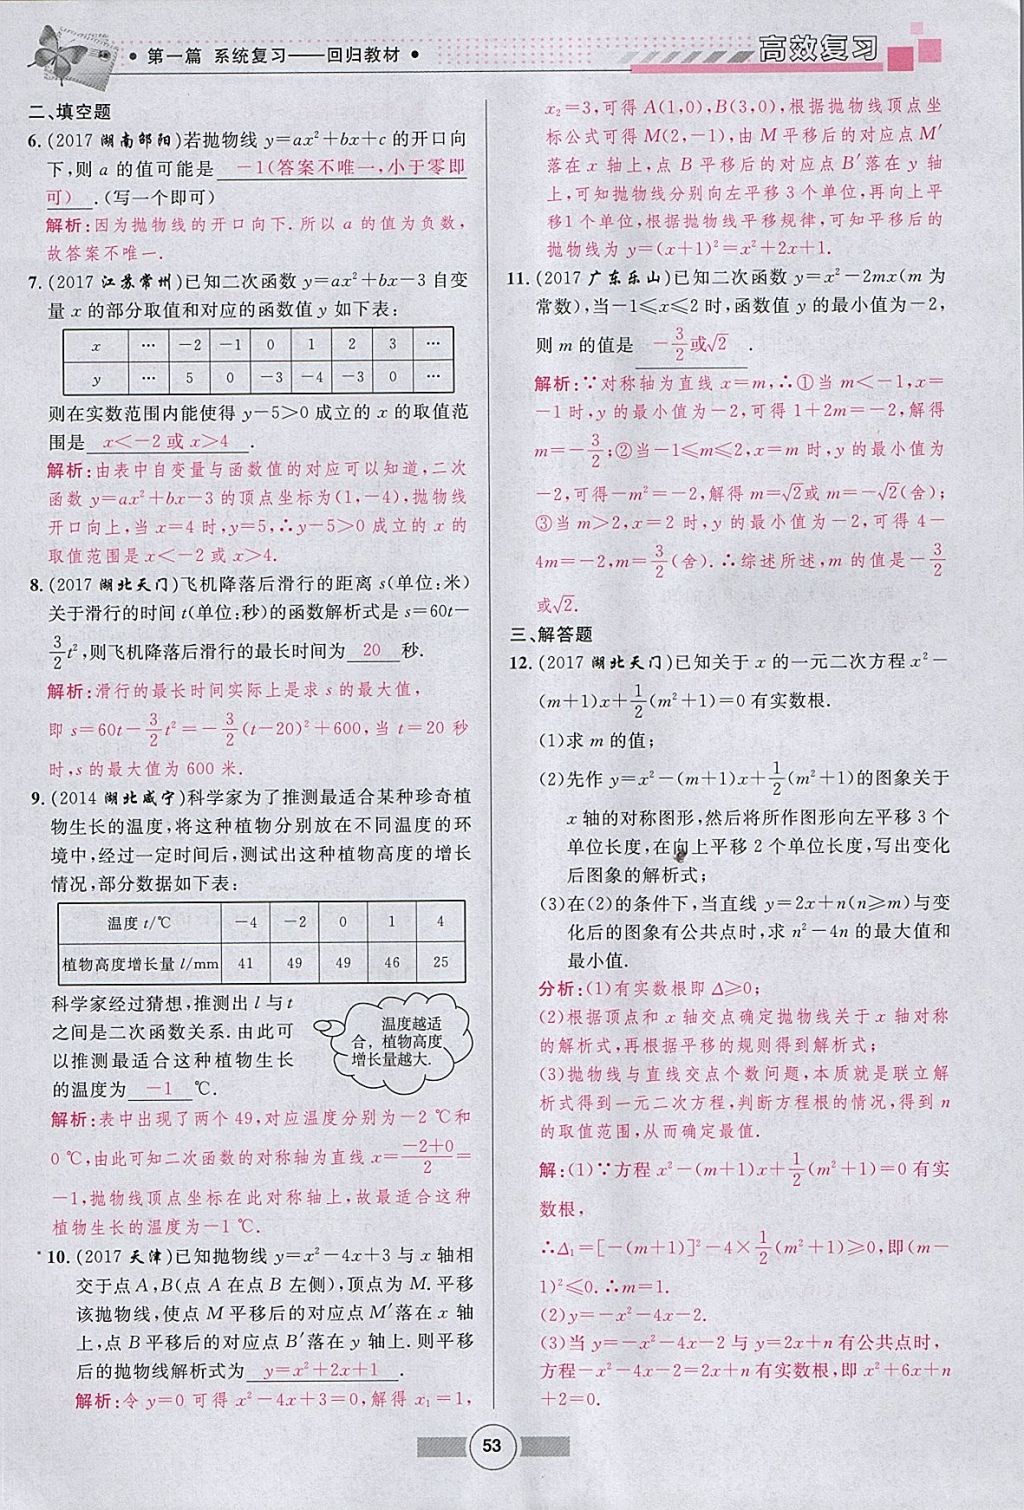 第一篇 系统复习——回归教材
高效复习
二、填空题
6. (2017 湖南邵阳)若抛物线 y=ax²+bx+c 的开口向
下,则 a 的值可能是 -1(答案不唯一,小于零即
可) .(写一个即可)
解析:因为抛物线的开口向下.所以 a 的值为负数,
故答案不唯一.
7. (2017 江苏常州)已知二次函数 y=ax²+bx-3 自变
量 x 的部分取值和对应的函数值 y 如下表:
x … -2 -1 0 1 2 3 …
y … 5 0 -3 -4 -3 0 …
则在实数范围内能使得 y-5>0 成立的 x 的取值范
围是 x<-2 或 x>4 .
解析:由表中自变量与函数值的对应可以知道,二次
函数 y=ax²+bx-3 的顶点坐标为(1,-4),抛物线
开口向上,当 x=4 时,y=5,∴y-5>0 成立的 x 的
取值范围是 x<-2 或 x>4.
8. (2017 湖北天门)飞机降落后滑行的距离 s(单位:米)
关于滑行的时间 t(单位:秒)的函数解析式是 s=60t-
3/2 t²,则飞机降落后滑行的最长时间为 20 秒.
解析:滑行的最长时间实际上是求 s 的最大值,
即 s=60t-3/2 t²=-3/2(t-20)²+600,当 t=20 秒
时,s 的最大值为 600 米.
9. (2014 湖北咸宁)科学家为了推测最适合某种珍奇植
物生长的温度,将这种植物分别放在不同温度的环
境中,经过一定时间后,测试出这种植物高度的增长
情况,部分数据如下表:
温度 t/℃ -4 -2 0 1 4
植物高度增长量 l/mm 41 49 49 46 25
科学家经过猜想,推测出 l 与 t
之间是二次函数关系.由此可
以推测最适合这种植物生长
的温度为 -1 ℃.
温度越适
合,植物高度
增长量越大.
解析:表中出现了两个 49,对应温度分别为-2 ℃和
0 ℃,由此可知二次函数的对称轴为直线 x=(-2+0)/2=
-1,抛物线顶点坐标在此对称轴上,故最适合这种
植物生长的温度为-1 ℃.
10. (2017 天津)已知抛物线 y=x²-4x+3 与 x 轴相
交于点 A,B(点 A 在点 B 左侧),顶点为 M.平移
该抛物线,使点 M 平移后的对应点 M′落在 x 轴
上,点 B 平移后的对应点 B′落在 y 轴上.则平移
后的抛物线解析式为 y=x²+2x+1 .
解析:令 y=0 可得 x²-4x+3=0,解得 x₁=1,
x₂=3,可得 A(1,0),B(3,0),根据抛物线顶点坐
标公式可得 M(2,-1),由 M 平移后的对应点 M′
落在 x 轴上,点 B 平移后的对应点 B′落在 y 轴
上,可知抛物线分别向左平移 3 个单位,再向上平
移1 个单位,根据抛物线平移规律,可知平移后的
抛物线为 y=(x+1)²=x²+2x+1.
11. (2017 广东乐山)已知二次函数 y=x²-2mx(m 为
常数),当-1⩽x⩽2 时,函数值 y 的最小值为-2,
则 m 的值是 -3/2或√2 .
解析:∵对称轴为直线 x=m,∴①当 m<-1,x=
-1 时,y 的最小值为-2,可得 1+2m=-2,解得
m=-3/2;②当-1⩽m⩽2,x=m 时,y 的最小值为
-2,可得-m²=-2,解得 m=√2或 m=-√2(舍);
③当 m>2,x=2 时,y 的最小值为-2,可得 4-
4m=-2,m=3/2(舍).∴综述所述,m 的值是-3/2
或√2.
三、解答题
12. (2017 湖北天门)已知关于 x 的一元二次方程 x²-
(m+1)x+1/2(m²+1)=0 有实数根.
(1)求 m 的值;
(2)先作 y=x²-(m+1)x+1/2(m²+1)的图象关于
x 轴的对称图形,然后将所作图形向左平移 3 个
单位长度,在向上平移 2 个单位长度,写出变化
后图象的解析式;
(3)在(2)的条件下,当直线 y=2x+n(n⩾m)与变
化后的图象有公共点时,求 n²-4n 的最大值和
最小值.
分析:(1)有实数根即 Δ⩾0;
(2)根据顶点和 x 轴交点确定抛物线关于 x 轴对称
的解析式,再根据平移的规则得到解析式;
(3)抛物线与直线交点个数问题,本质就是联立解
析式得到一元二次方程,判断方程根的情况,得到 n
的取值范围,从而确定最值.
解:(1)∵方程 x²-(m+1)x+1/2(m²+1)=0 有实
数根,
∴Δ₁=[-(m+1)]²-4×1/2(m²+1)⩾0,即(m-
1)²⩽0.∴m=1.
(2)y=-x²-4x-2.
(3)当 y=-x²-4x-2 与 y=2x+n 有公共点时,
方程-x²-4x-2=2x+n 有实数根,即 x²+6x+n
+2=0.
53